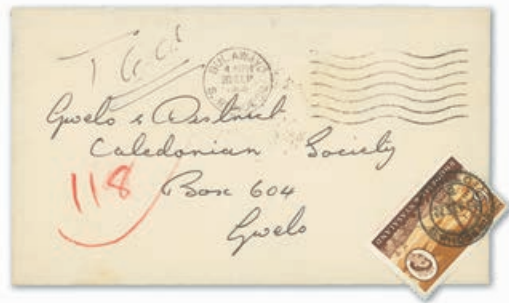 BULAWAYO
Gwelo & District
Caledonian Society
118
Box 604
Gwelo